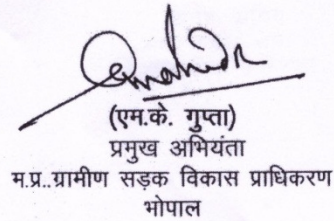 (एम.के. गुप्ता)
प्रमुख अभियंता
म.प्र..ग्रामीण सड़क विकास प्राधिकरण
भोपाल